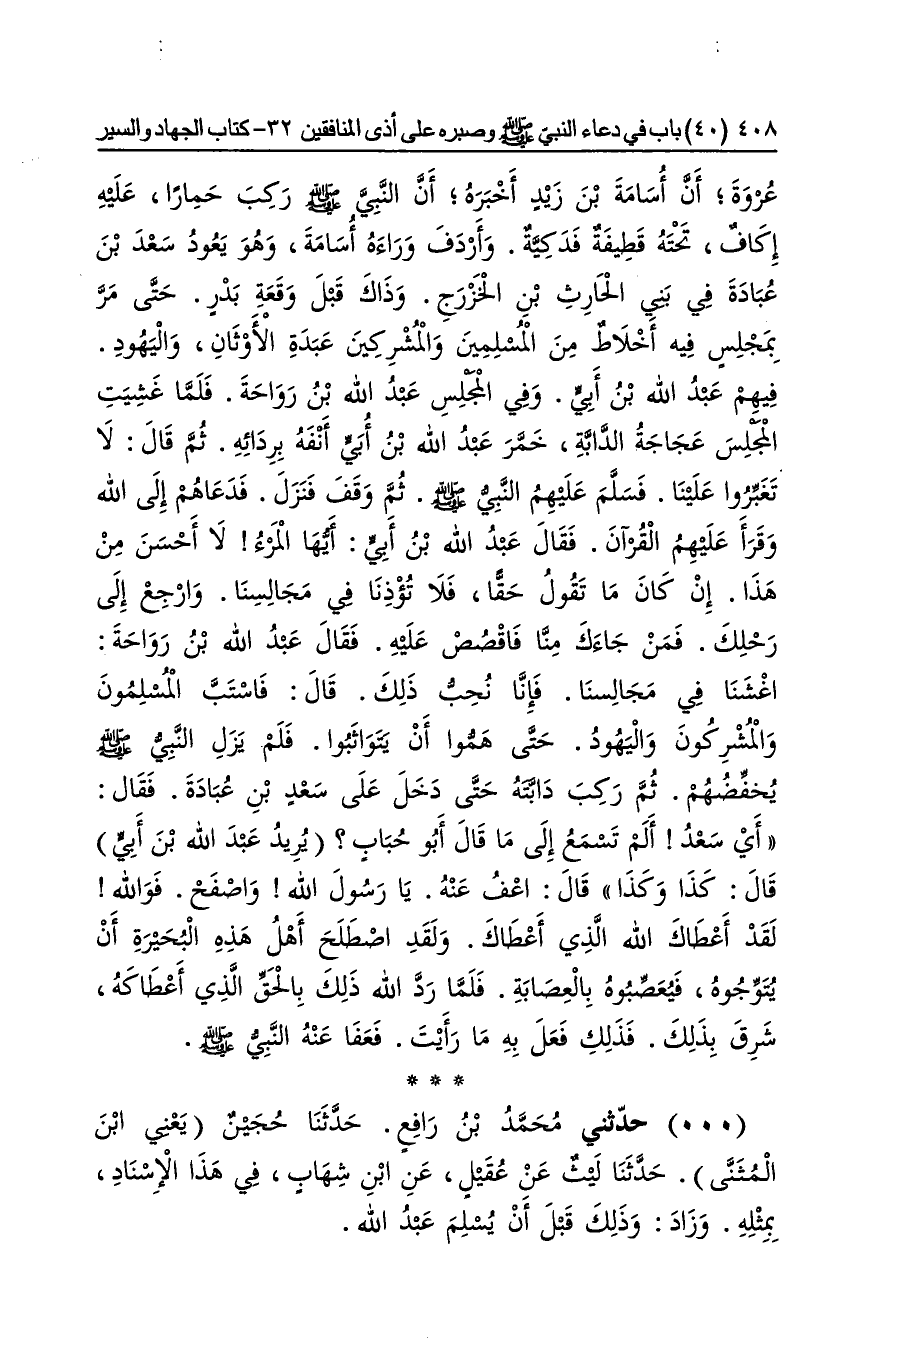 ٤٠٨ (٤٠) باب في دعاء النبيّ ﷺ وصبره على أذى المنافقين ٣٢- كتاب الجهاد والسير
عُرْوَةَ ؛ أَنَّ أُسَامَةَ بْنَ زَيْدٍ أَخْبَرَهُ ؛ أَنَّ النَّبِيَّ ﷺ رَكِبَ حَمارًا ، عَلَيْهِ
إِكَافٌ ، تَحْتَهُ قَطِيفَةٌ فَدَكِيَّةٌ . وَأَرْدَفَ وَرَاءَهُ أُسَامَةَ ، وَهُوَ يَعُودُ سَعْدَ بْنَ
عُبَادَةَ فِي بَنِي الْحَارِثِ بْنِ الْخَزْرَجِ . وَذَاكَ قَبْلَ وَقْعَةِ بَدْرٍ . حَتَّى مَرَّ
بِمَجْلِسٍ فِيهِ أَخْلَاطٌ مِنَ الْمُسْلِمِينَ وَالْمُشْرِكِينَ عَبَدَةِ الْأَوْثَانِ ، وَالْيَهُودِ .
فِيهِمْ عَبْدُ الله بْنُ أُبَيٍّ . وَفِي الْمَجْلِسِ عَبْدُ الله بْنُ رَوَاحَةَ . فَلَمَّا غَشِيَتِ
الْمَجْلِسَ عَجَاجَةُ الدَّابَّةِ ، خَمَّرَ عَبْدُ الله بْنُ أُبَيٍّ أَنْفَهُ بِرِدَائِهِ . ثُمَّ قَالَ : لَا
تُغَبِّرُوا عَلَيْنَا . فَسَلَّمَ عَلَيْهِمُ النَّبِيُّ ﷺ . ثُمَّ وَقَفَ فَنَزَلَ . فَدَعَاهُمْ إِلَى الله
وَقَرَأَ عَلَيْهِمُ الْقُرْآنَ . فَقَالَ عَبْدُ الله بْنُ أُبَيٍّ : أَيُّهَا الْمَرْءُ ! لَا أَحْسَنَ مِنْ
هَذَا . إِنْ كَانَ مَا تَقُولُ حَقًّا ، فَلَا تُؤْذِنَا فِي مَجَالِسِنَا . وَارْجِعْ إِلَى
رَحْلِكَ . فَمَنْ جَاءَكَ مِنَّا فَاقْصُصْ عَلَيْهِ . فَقَالَ عَبْدُ الله بْنُ رَوَاحَةَ :
اغْشَنَا فِي مَجَالِسنَا . فَإِنَّا نُحِبُّ ذَلِكَ . قَالَ : فَاسْتَبَّ الْمُسْلِمُونَ
وَالْمُشْرِكُونَ وَالْيَهُودُ . حَتَّى هَمُّوا أَنْ يَتَوَاثَبُوا . فَلَمْ يَزَلِ النَّبِيُّ ﷺ
يُخفِّضُهُمْ . ثُمَّ رَكِبَ دَابَّتَهُ حَتَّى دَخَلَ عَلَى سَعْدِ بْنِ عُبَادَةَ . فَقَال :
« أَيْ سَعْدُ ! أَلَمْ تَسْمَعْ إِلَى مَا قَالَ أَبُو حُبَابٍ ؟ (يُرِيدُ عَبْدَ الله بْنَ أُبَيٍّ)
قَالَ : كَذَا وَكَذَا» قَالَ : اعْفُ عَنْهُ . يَا رَسُولَ الله ! وَاصْفَحْ . فَوَالله !
لَقَدْ أَعْطَاكَ الله الَّذِي أَعْطَاكَ . وَلَقَدِ اصْطَلَحَ أَهْلُ هَذِهِ الْبُحَيْرَةِ أَنْ
يُتَوِّجُوهُ ، فَيُعَصِّبُوهُ بِالْعِصَابَةِ . فَلَمَّا رَدَّ الله ذَلِكَ بِالْحَقِّ الَّذِي أَعْطَاكَهُ ،
شَرِقَ بِذَلِكَ . فَذَلِكِ فَعَلَ بِهِ مَا رَأَيْتَ . فَعَفَا عَنْهُ النَّبِيُّ ﷺ .
* * *
(٠٠٠) حدّثني مُحَمَّدُ بْنُ رَافِعٍ . حَدَّثَنَا حُجَيْنٌ (يَعْنِي ابْنَ
الْمُثَنَّى) . حَدَّثَنَا لَيْثٌ عَنْ عُقَيْلٍ ، عَنِ ابْنِ شِهَابٍ ، فِي هَذَا الْإِسْنَادِ ،
بِمِثْلِهِ . وَزَادَ : وَذَلِكَ قَبْلَ أَنْ يُسْلِمَ عَبْدُ الله .